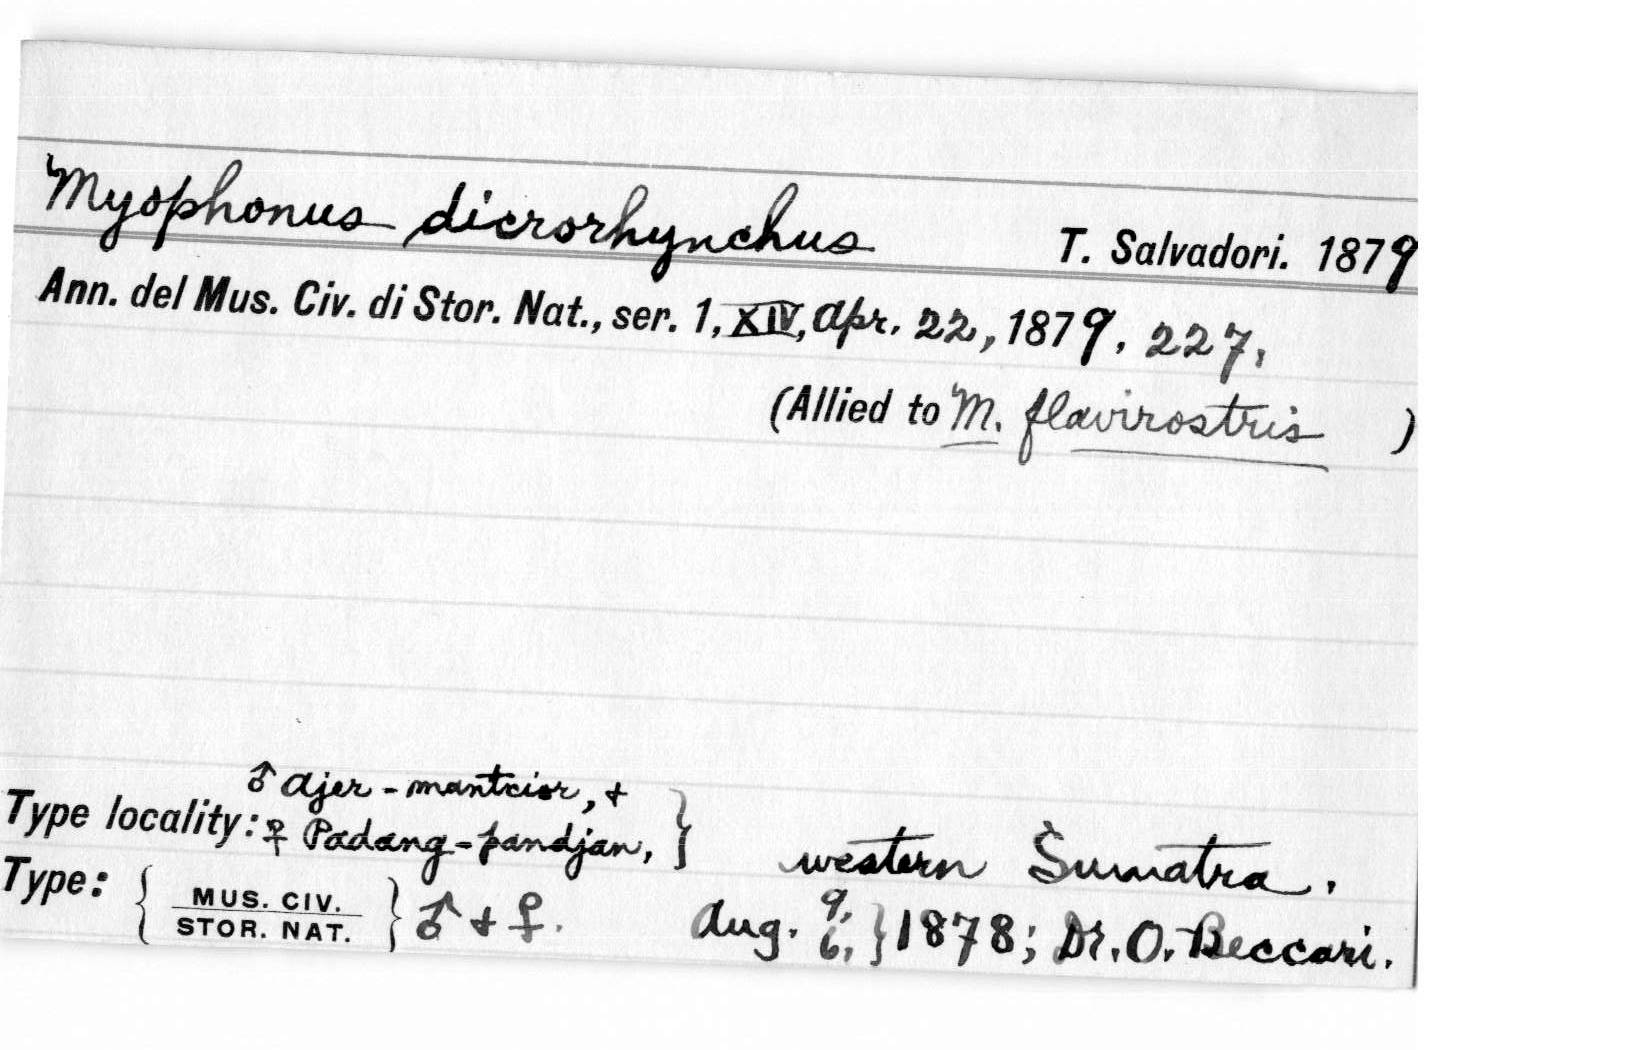 Myophonus dicrorhynchus T. Salvadori. 1879
Ann. del Mus. Civ. di Stor. Nat., ser. 1, XIV, Apr. 22, 1879, 227,
(Allied to M. flavirostris )
♂ Ajer-mantcior, +
Type locality: ♀ Padang-pandjan, } western Sumatra.
Type: { MUS. CIV.
STOR. NAT. } ♂ + ♀. Aug. 9, 6, } 1878; Dr. O. Beccari.